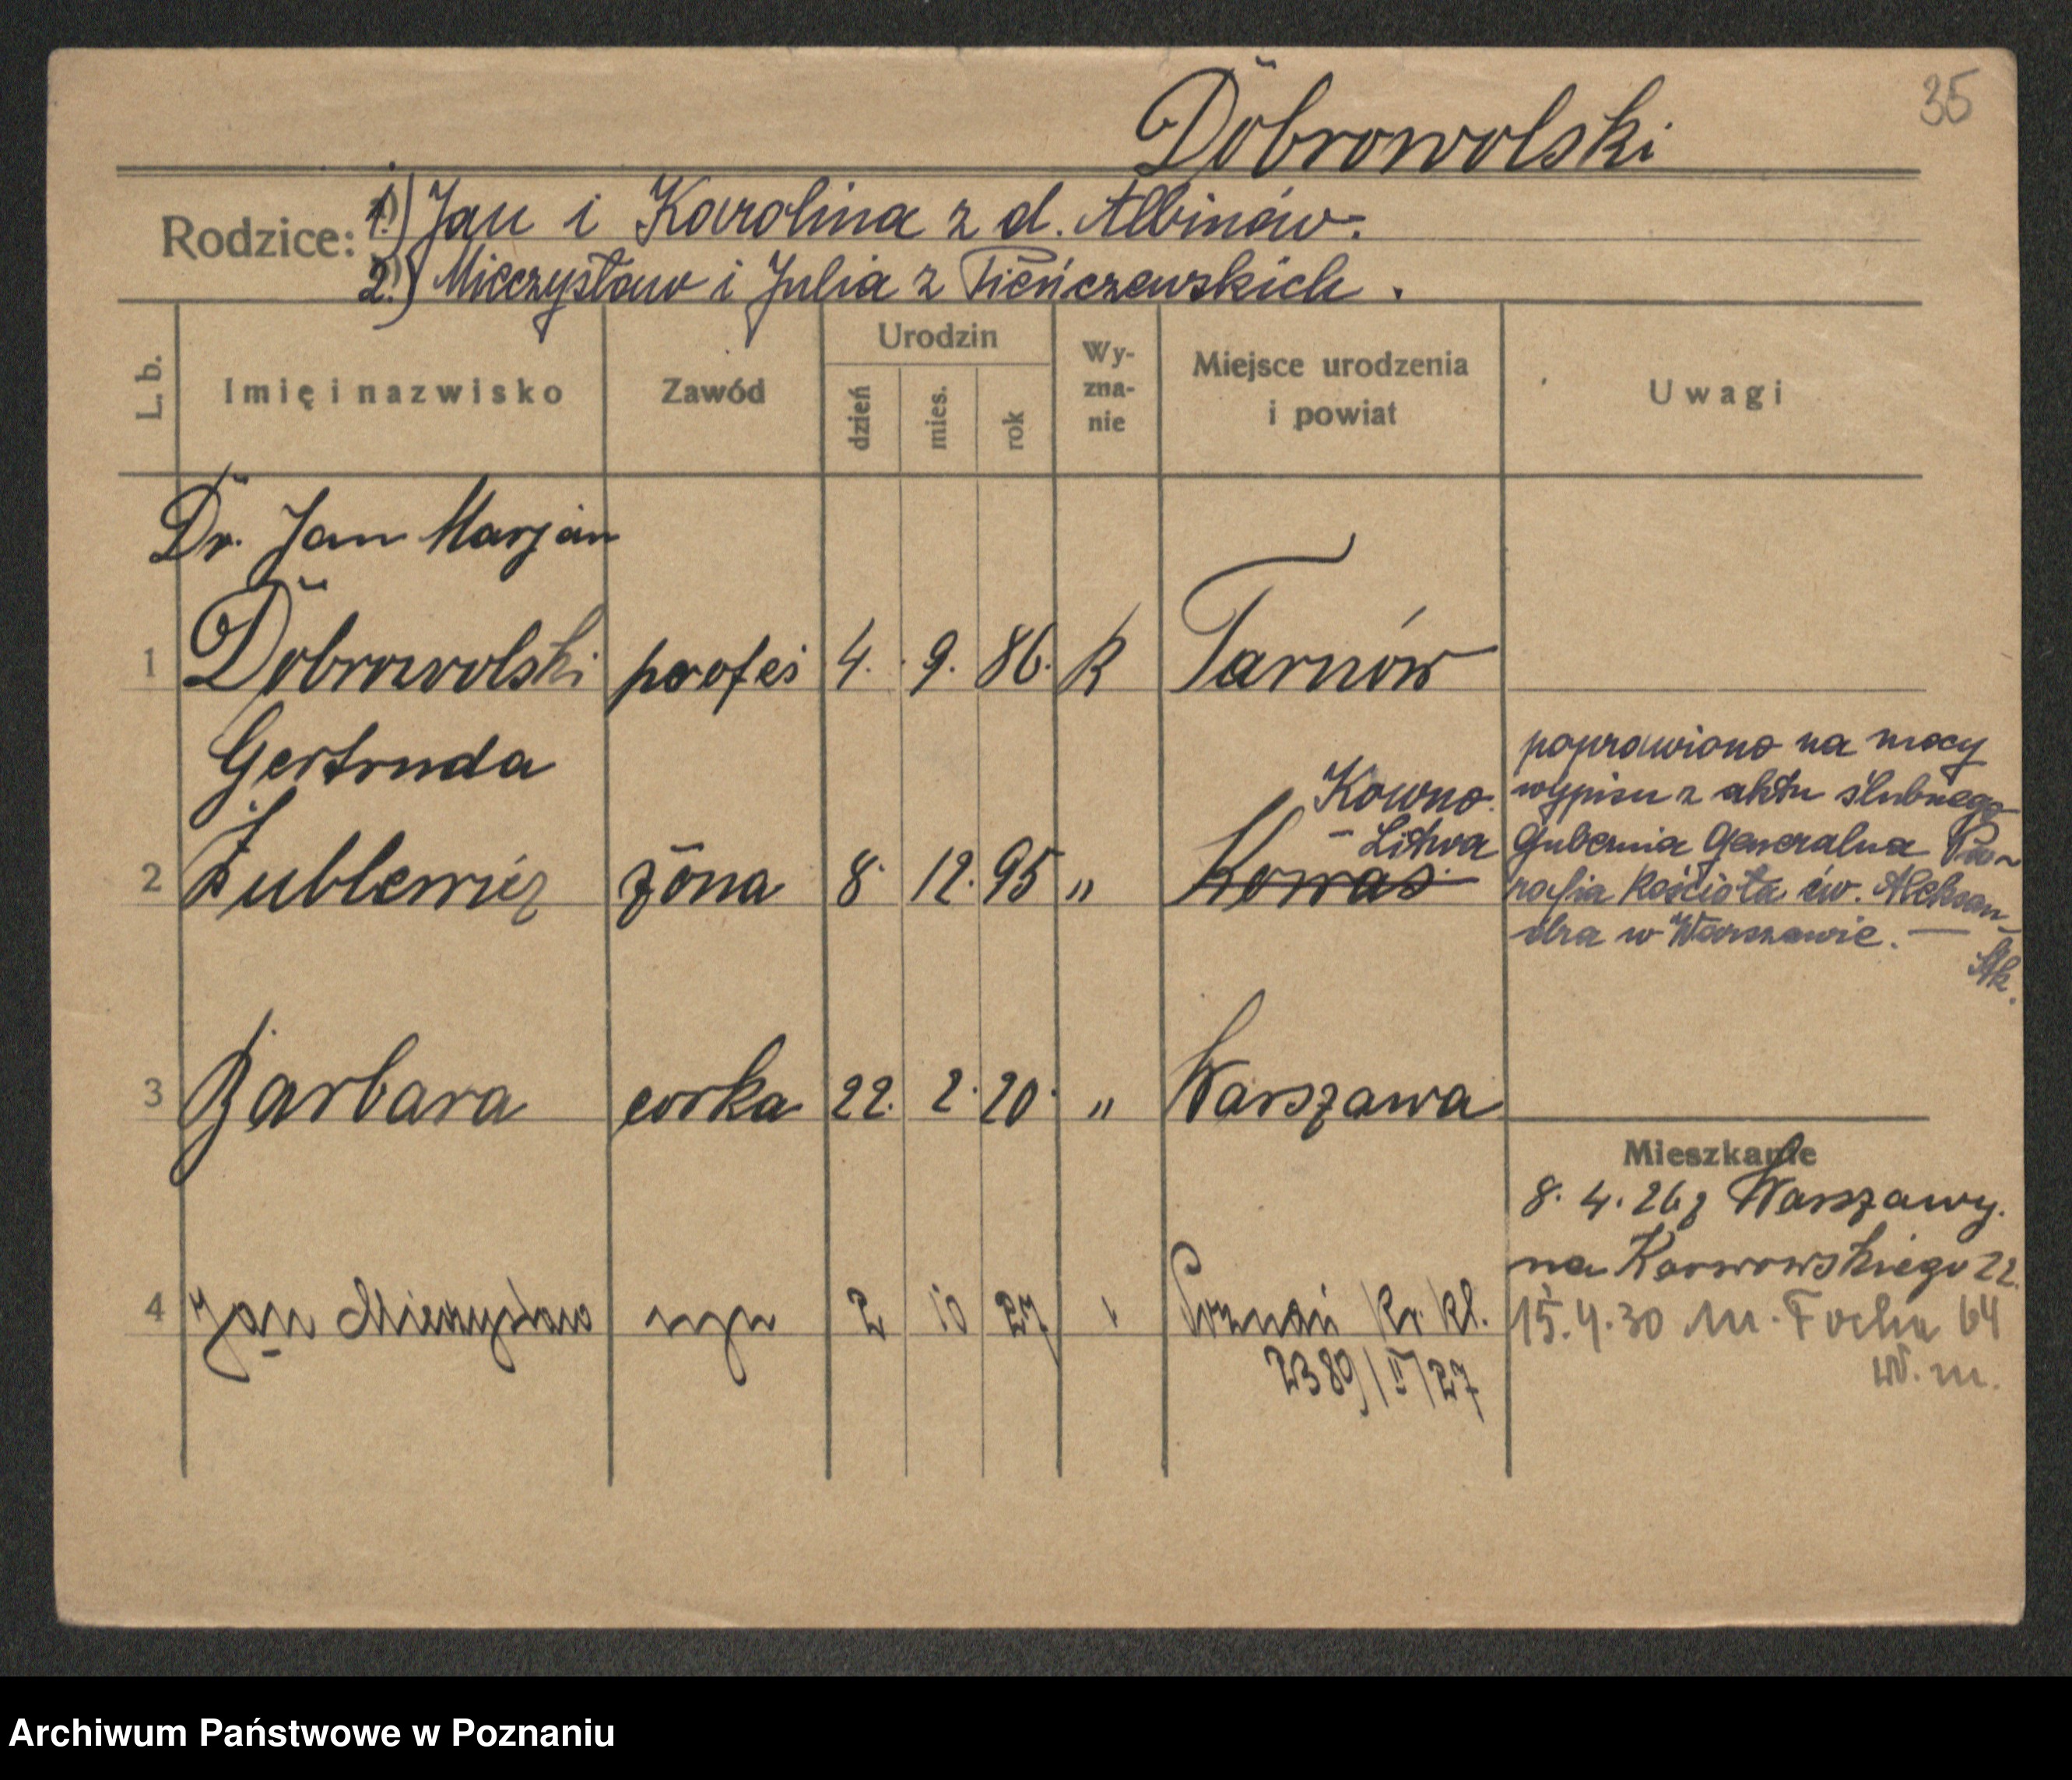 35
Dobrowolski
Rodzice: 1.) Jan i Karolina z d. Albinów.
2.) Mieczysław i Julia z Pieńczewskich.
L. b. Imię i nazwisko Zawód Urodzin dzień mies. rok Wy-zna-nie Miejsce urodzenia i powiat Uwagi
Dr. Jan Marjan
1 Dobrowolski profes 4. 9. 86. R Tarnów
Gertruda
2 Żublewicz żona 8. 12. 95 " Kowno - Litwa Kowas.
poprawiono na mocy
wypisu z aktu ślubnego
Gubernia Generalna Pa-
rafia Kościoła św. Aleksan-
dra w Warszawie. —
3 Barbara corka 22. 2. 20. " Warszawa
Mieszkanie
8. 4. 26 z Warszawy.
na Karwowskiego 22.
4 Jan Mieczysław syn 2 10 27 Poznań Kr. kl.
2380/II/27
15.4.30 M. Focha 64
W. m.
Archiwum Państwowe w Poznaniu